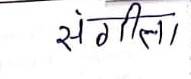 संगीला